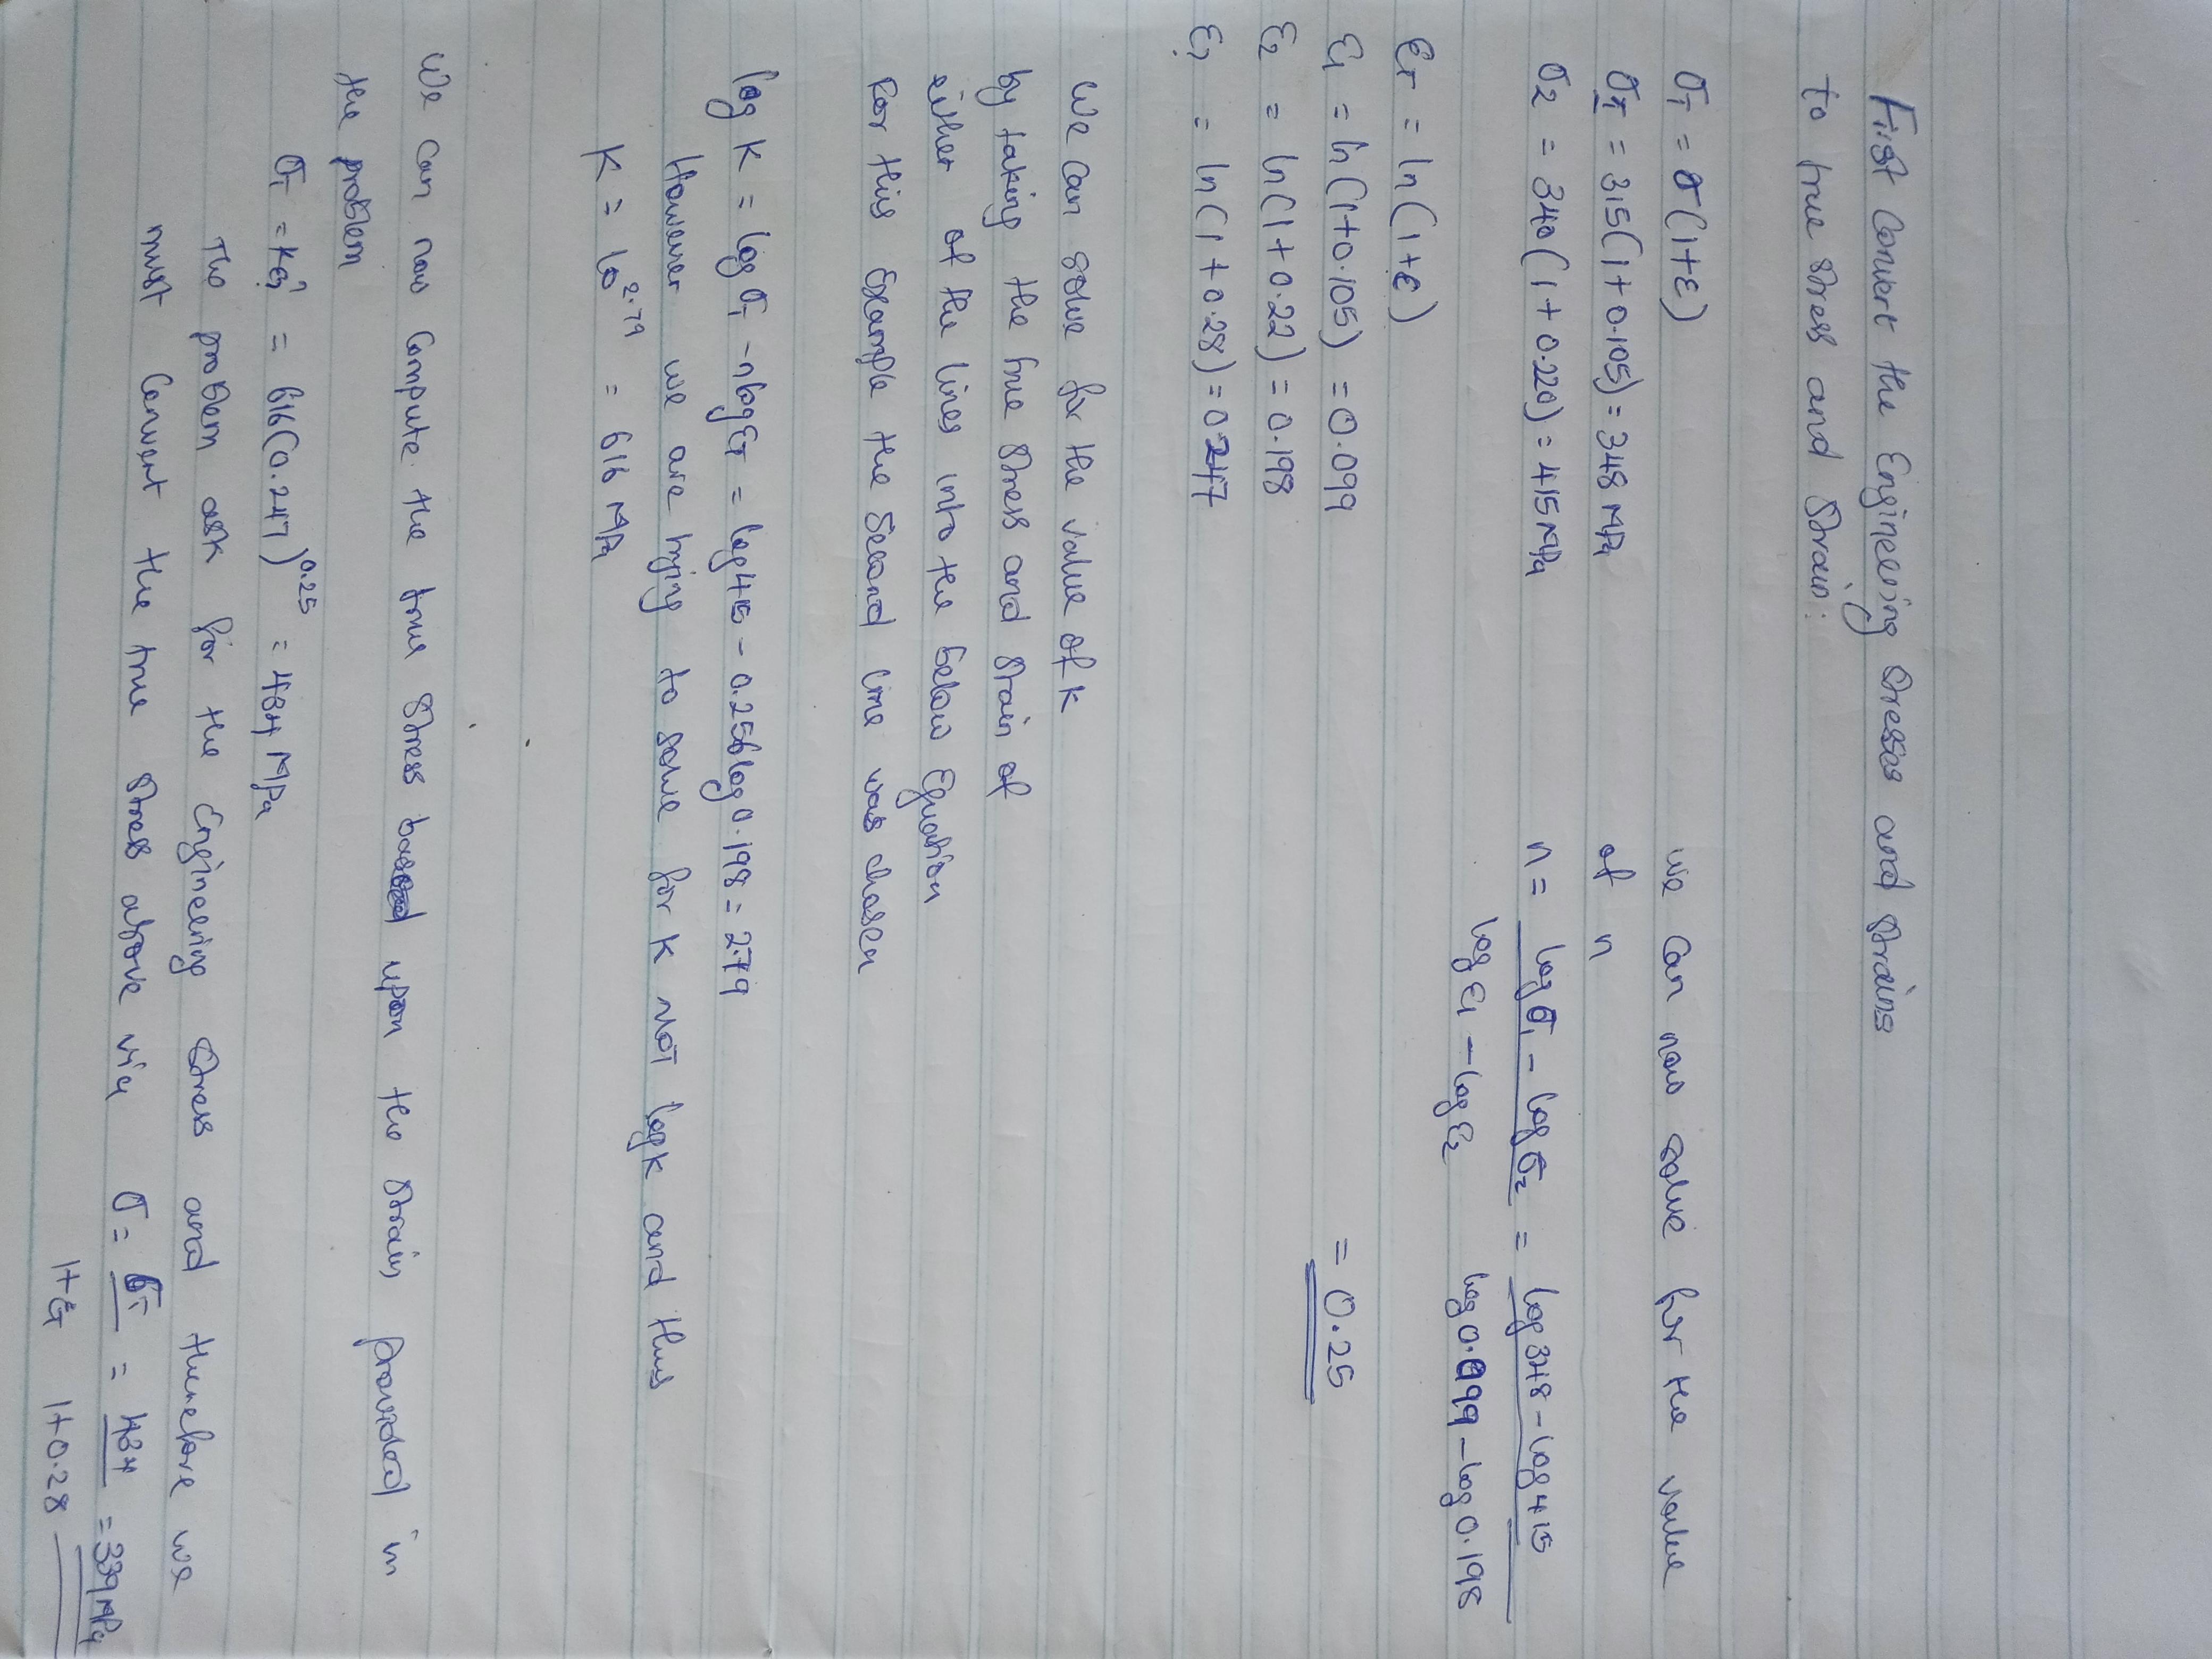 First Convert the Engineering Stresses and Strains
to true stress and Strain:
σT = σ(1+ε)
σT = 315(1+0.105) = 348 MPa
σ2 = 340(1+0.220) = 415MPa
We can now solve for the value
of n
n = log σ1 - log σ2 / log ε1 - log ε2 = log 348 - log 415 / log 0.099 - log 0.198
= 0.25
εT = ln(1+ε)
ε1 = ln(1+0.105) = 0.099
ε2 = ln(1+0.22) = 0.198
ε3 = ln(1+0.28) = 0.247
We can solve for the value of K
by taking the true stress and strain of
either of the lines into the below Equation
For this Example the Second line was chosen
log K = log σT - n log εT = log 415 - 0.256 log 0.198 = 2.79
However we are trying to solve for K not log K and thus
K = 10^2.79 = 616 MPa
We can now Compute the true stress based upon the strain provided in
the problem
σT = KεT^n = 616(0.247)^0.25 = 434 MPa
The problem ask for the Engineering stress and therefore we
must Convert the true stress above via σ = σT / 1+εT = 434 / 1+0.28 = 339MPa